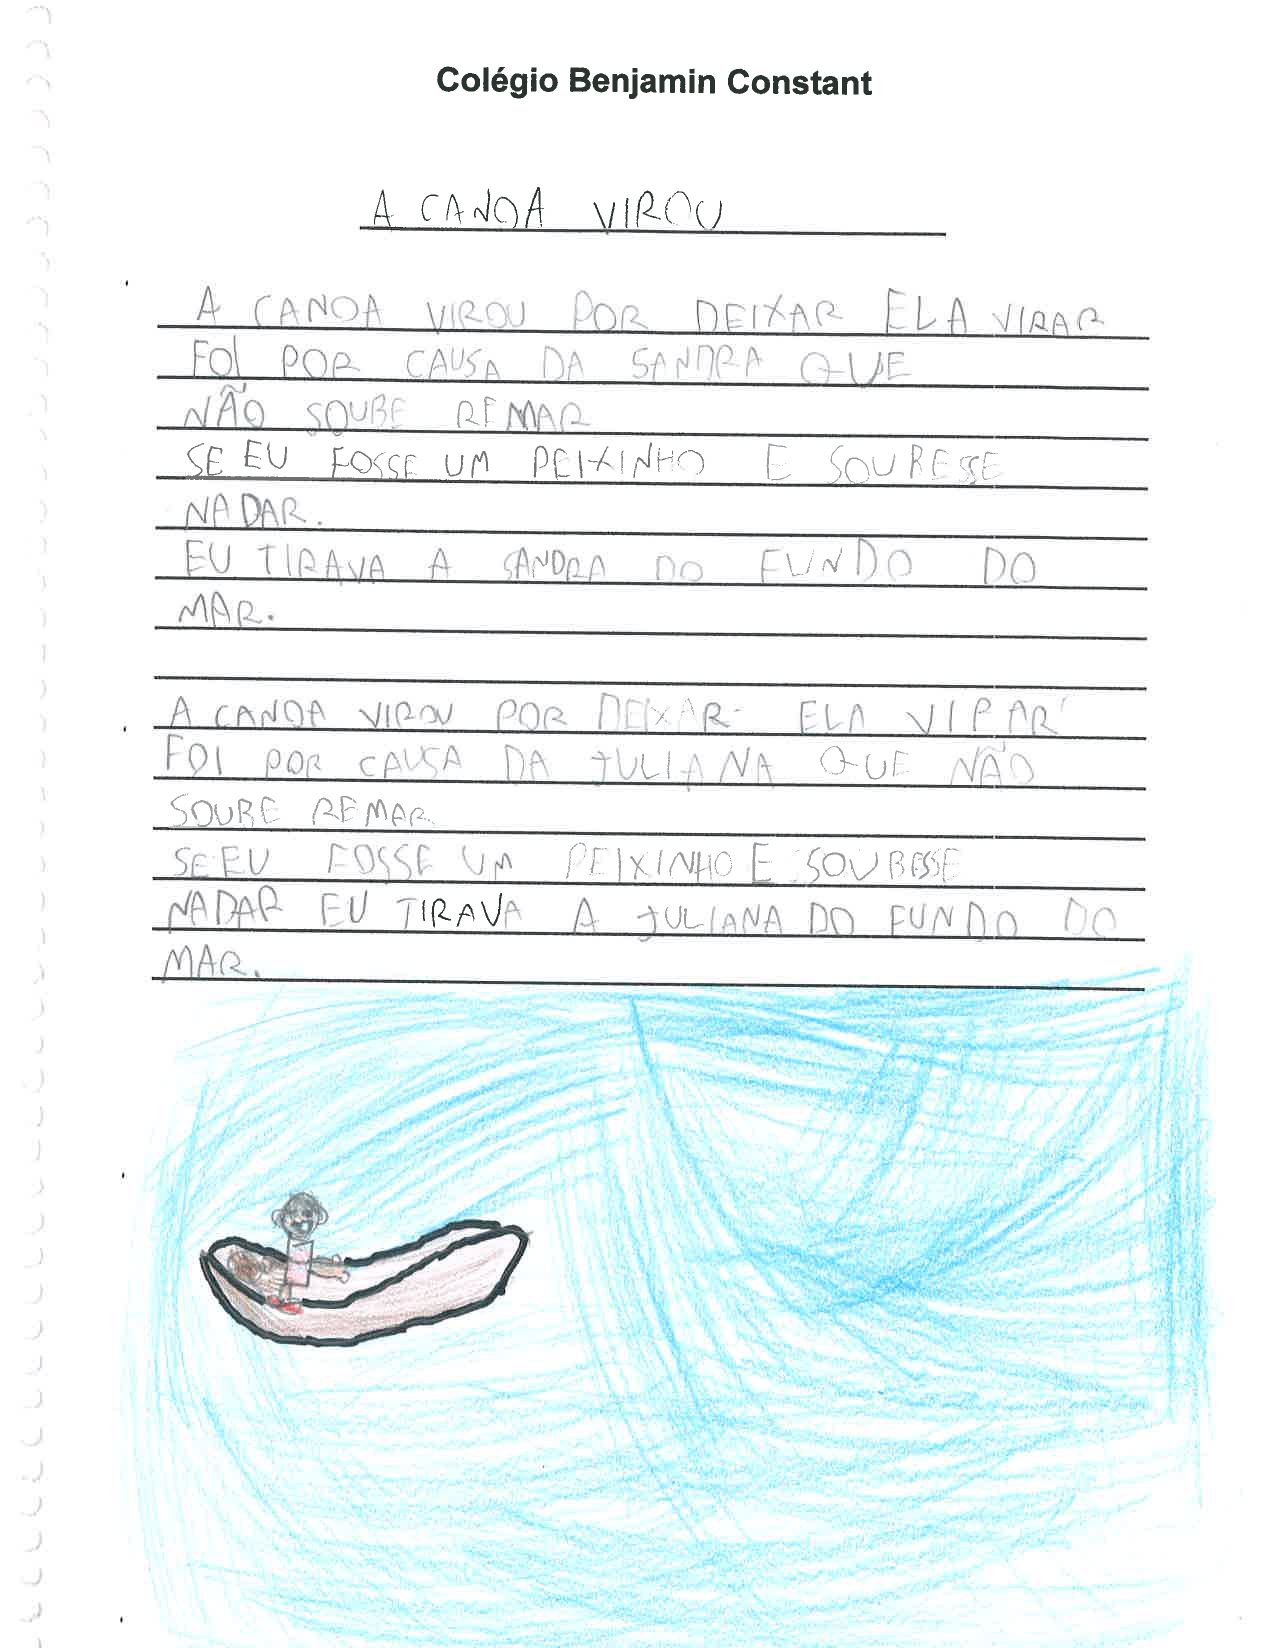 Colégio Benjamin Constant
A CANOA VIROU
A CANOA VIROU POR DEIXAR ELA VIRAR
FOI POR CAUSA DA SANDRA QUE
NÃO SOUBE REMAR
SE EU FOSSE UM PEIXINHO E SOUBESSE
NADAR.
EU TIRAVA A SANDRA DO FUNDO DO
MAR.
A CANOA VIROU POR DEIXAR ELA VIRAR
FOI POR CAUSA DA JULIANA QUE NÃO
SOUBE REMAR
SE EU FOSSE UM PEIXINHO E SOUBESSE
NADAR EU TIRAVA A JULIANA DO FUNDO DO
MAR.